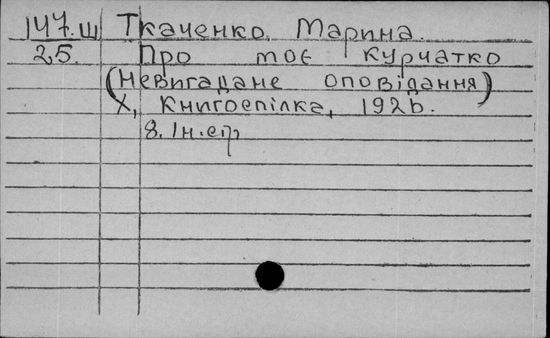 147.ш Ткаченко, Марина.
25. Про моє курчатко
(Невигадане оповідання)
Х, Книгоспілка, 1926.
8. Ін.